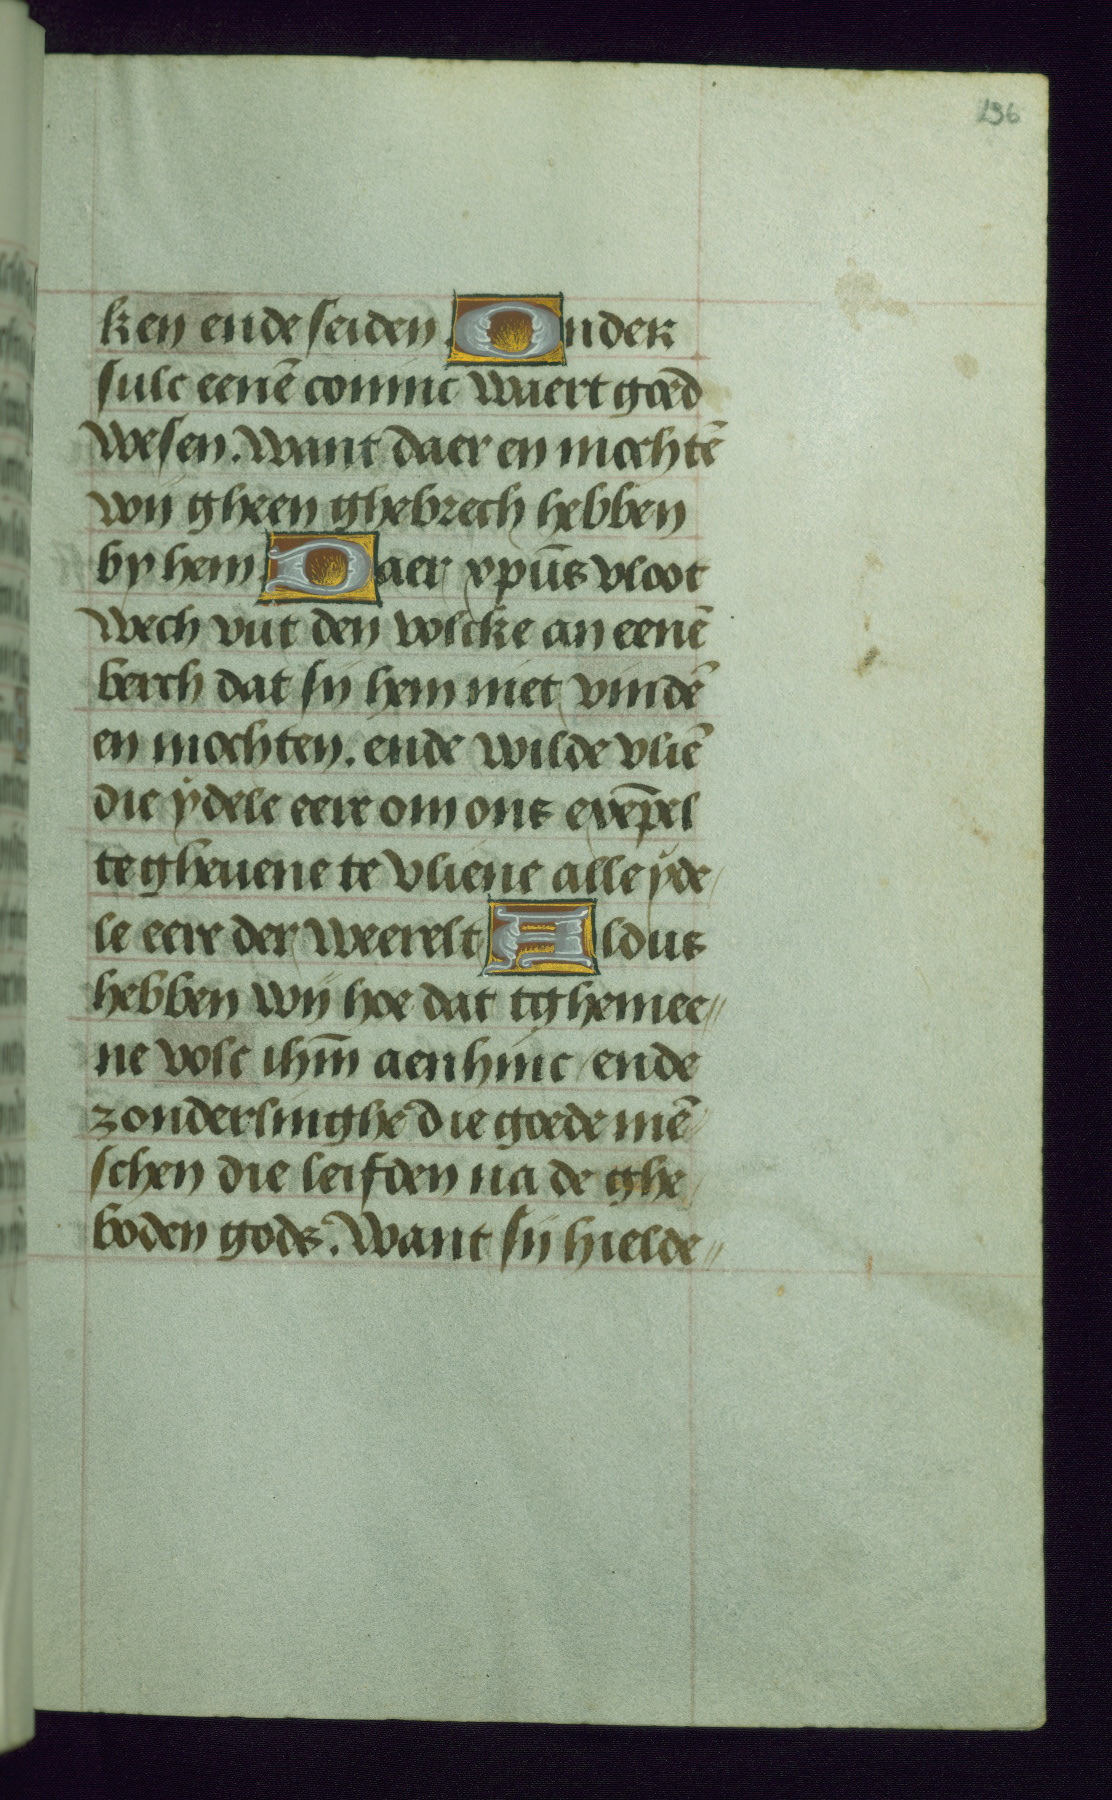 196
ken ende seiden. Onder
sulc eenē coninc waert goed
wesen. Want daer en mochtē
wij gheen ghebrech hebben
by hem. Daer xpūs vloot
wech vut den volcke an eenē
berch dat sij hem niet vindē
en mochten. ende wilde vliē
die ydele eere om ons exēpel
te gheuene te vliene alle yde/
le eere der weerelt Aldus
hebben wij hoe dat tghemee//
ne volc ihm̄ aenhinc / ende
zonderlinghe die goede mē/
schen die leifden na de ghe/
boden gods. Want sij hielde//